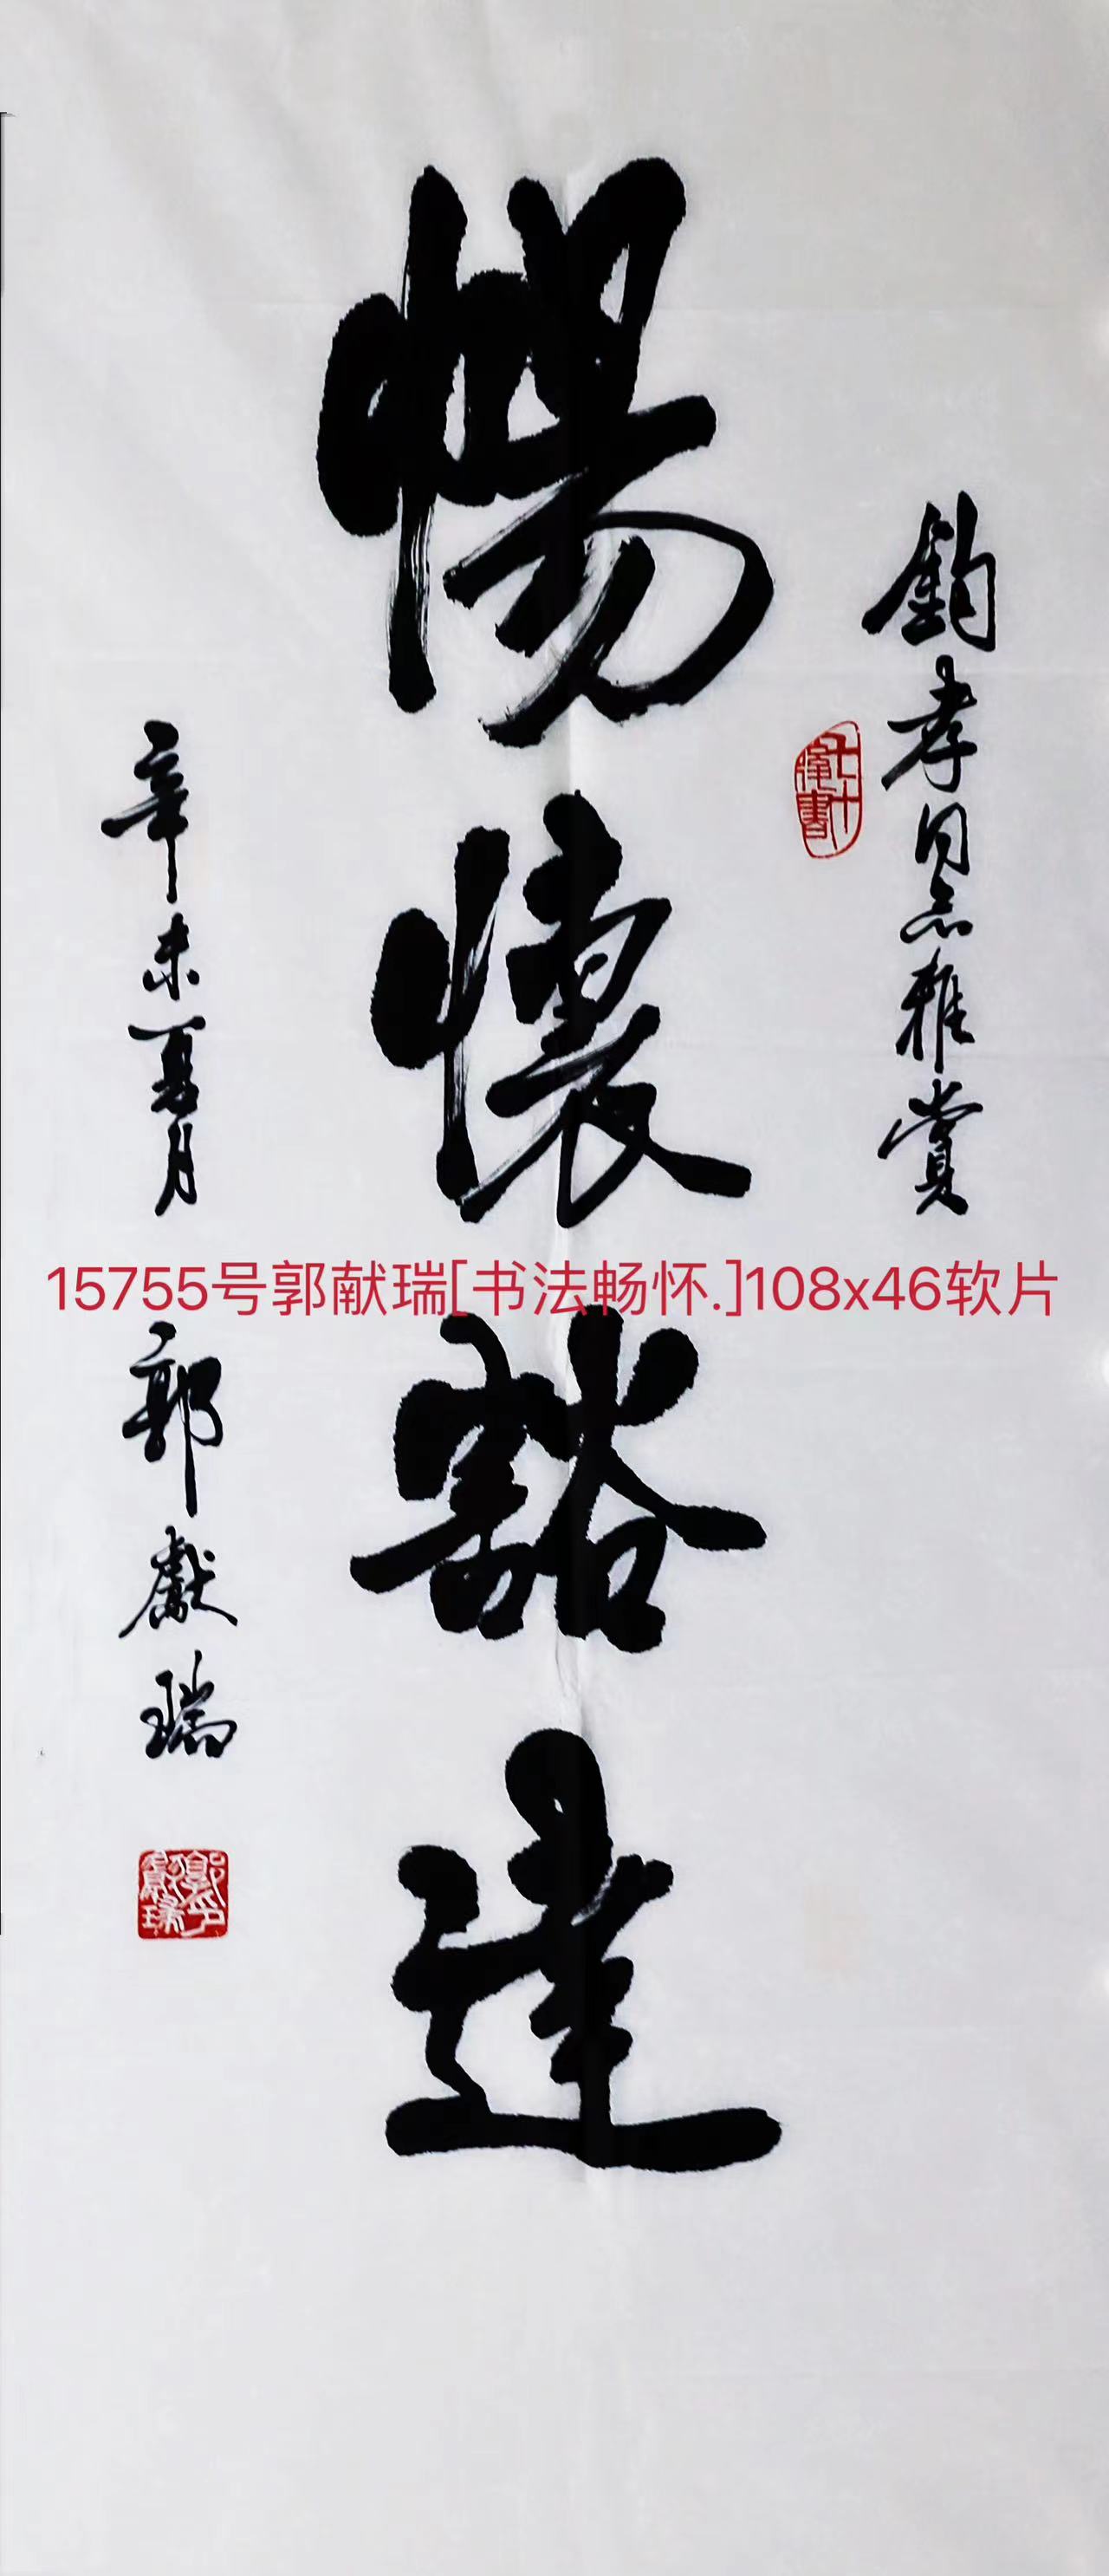 鈞孝同志雅賞
暢懷豁達
辛未夏月 郭獻瑞
15755号郭献瑞[书法畅怀.]108x46软片